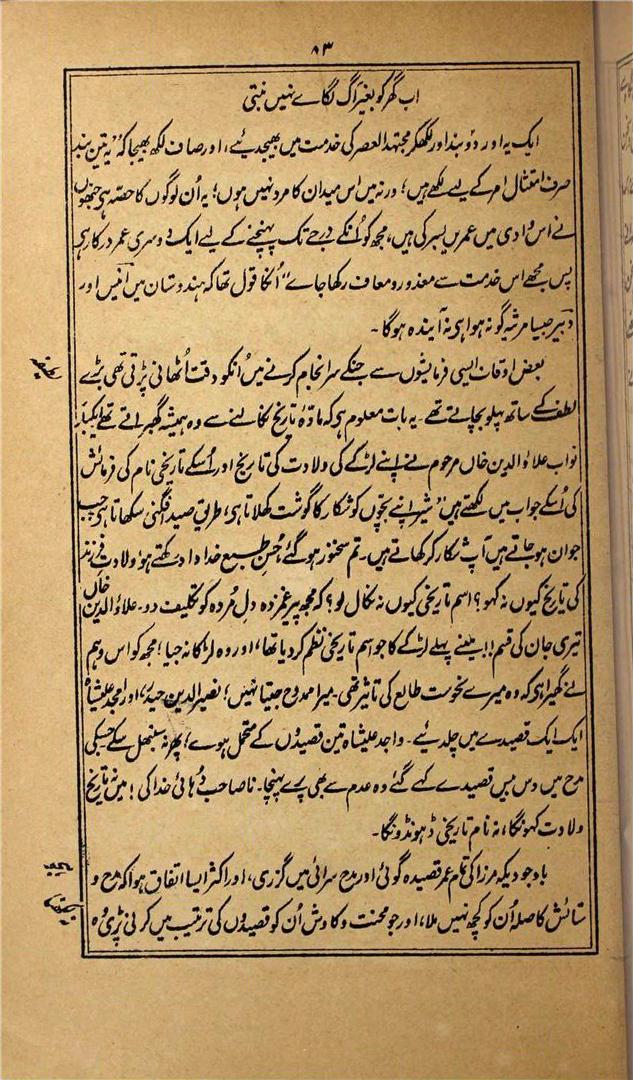 ۸۳
اب گھر کو بغیر آگ لگاے نہیں بنتی
ایک یہ اور دو بند اور لکھکر مجتہد العصر کی خدمت میں بھیجدیئے، اور صاف لکھ بھیجا کہ "یہ تین بند
صرف امتثالِ امر کے لیے لکھے ہیں؛ ورنہ میں اس میدان کا مرد نہیں ہوں؛ یہ اُن لوگوں کا حصہ ہی جنھوں
نے اس وادی میں عمریں بسر کی ہیں، مجھکو اُنکے درجے تک پہنچنے کے لیے ایک دوسری عمر درکار ہی
پس مجھے اس خدمت سے معذور و معاف رکھا جاے" اُنکا قول تھا کہ ہندوستان میں انیس اور
دبیر جیسا مرثیہ گو نہ ہوا ہی نہ آیندہ ہوگا۔
بعض اوقات ایسی فرمایشوں سے جنکے سرانجام کرنے میں اُنکو دقت اُٹھانی پڑتی تھی بڑے
لطف کے ساتھ پہلو بچاتے تھے۔ یہ بات معلوم ہی کہ مادۂ تاریخ نکالنے سے وہ ہمیشہ گھبراتے تھے ایکبار
نواب علاؤالدین خاں مرحوم نے اپنے لڑکے کی ولادت کی تاریخ اور اُسکے تاریخی نام کی فرمائش
کی اُسکے جواب میں لکھتے ہیں "شیر اپنے بچوں کو شکار کا گوشت کھلاتا ہی، طریقِ صید افگنی سکھاتا ہی جب
جوان ہو جاتے ہیں آپ شکار کر کھاتے ہیں۔ تم سخنور ہو گئے، حُسنِ طبع خداداد رکھتے ہو، ولادتِ فرزند
کی تاریخ کیوں نہ کہو؟ اسم تاریخی کیوں نہ نکال لو؟ کہ مجھ پیر غمزدہ دل مُردہ کو تکلیف دو۔ علاؤالدین خاں
تیری جان کی قسم!! مینے پہلے لڑکے کا جو اسم تاریخی نظم کر دیا تھا، اور وہ لڑکا نہ جیا؛ مجھکو اس وہم
نے گھیرا ہی کہ وہ میرے نحوست طالع کی تاثیر تھی۔ میرا ممدوح جیتا نہیں؛ نصیرالدین حیدر، اور امجد علیشاہ
ایک ایک قصیدے میں چلدیئے۔ واجد علیشاہ تین قصیدوں کے متحمل ہوے؛ پھر نہ سنبھل سکے جسکی
مدح میں دس بیس قصیدے کہے گئے وہ عدم سے بھی پرے پہنچا۔ ناصاحب دُہائی خدا کی! میں نہ تاریخ
ولادت کہونگا، نہ نام تاریخی ڈھونڈونگا۔
باوجودیکہ مرزا کی تمام عمر قصیدہ گوئی اور مدح سرائی میں گزری، اور اکثر ایسا اتفاق ہوا کہ مدح و
ستائش کا صلہ اُن کو کچھ نہیں ملا، اور جو محنت و کاوش اُن کو قصیدوں کی ترتیب میں کرنی پڑی وہ